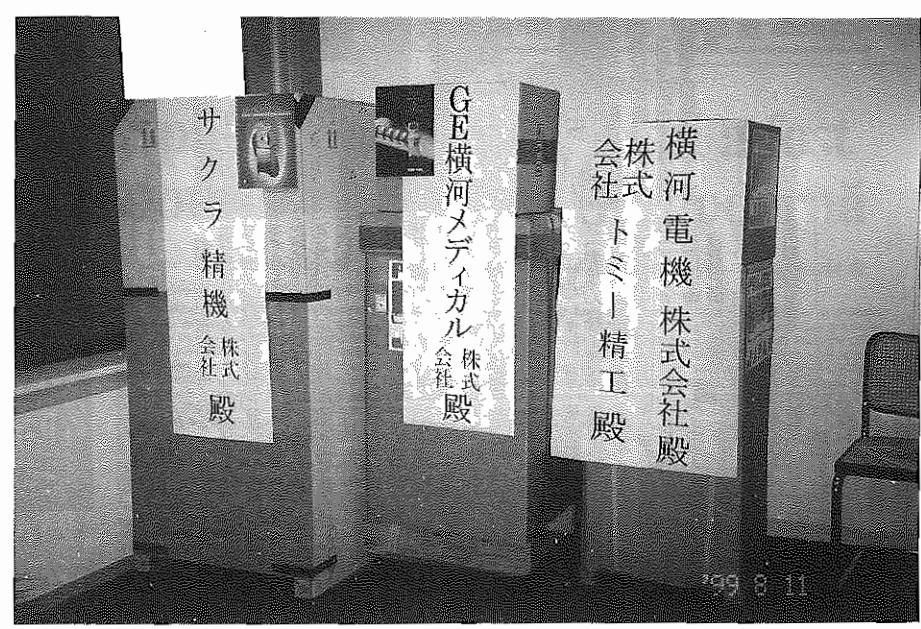 サクラ精機株式会社殿
GE横河メディカル株式会社殿
横河電機株式会社殿
株式会社トミー精工殿
'99 8 11